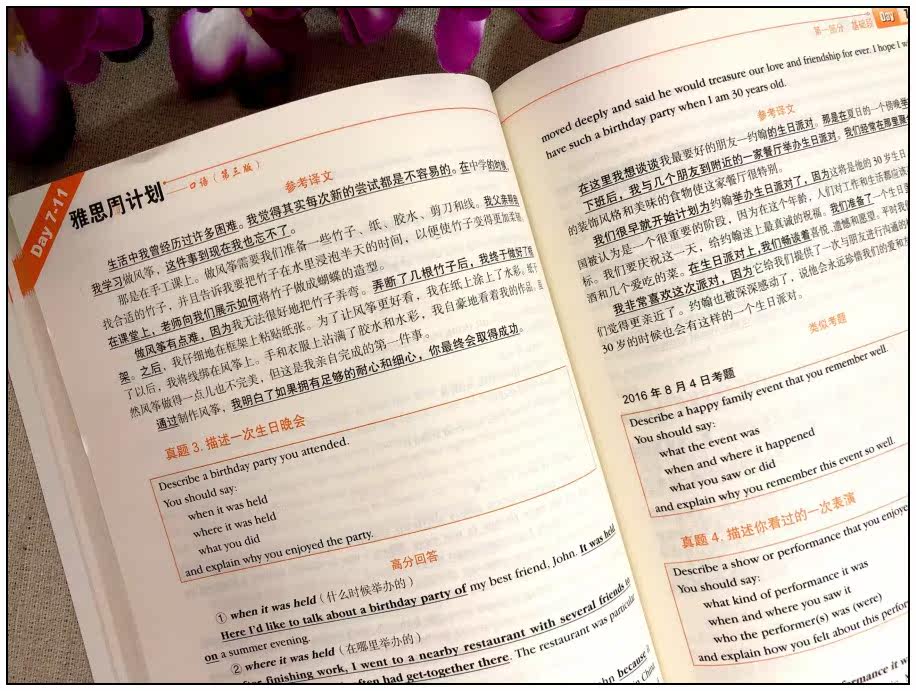 Day 7-11
雅思周计划——口语(第三版)
参考译文
生活中我曾经历过许多困难。我觉得其实每次新的尝试都是不容易的。在中学的时候,
我学习做风筝,这件事到现在我也忘不了。
那是在手工课上。做风筝需要我们准备一些竹子、纸、胶水、剪刀和线。我父亲帮我
找合适的竹子,并且告诉我要把竹子在水里浸泡半天的时间,以便使竹子变得更加柔韧。
在课堂上,老师向我们展示如何将竹子做成蝴蝶的造型。
做风筝有点难,因为我无法很好地把竹子弄弯。弄断了几根竹子后,我终于做好了框
架。之后,我仔细地在框架上粘贴纸张。为了让风筝更好看,我在纸上涂上了水彩。纸干
了以后,我将线绑在风筝上。手和衣服上沾满了胶水和水彩,我自豪地看着我的作品。虽
然风筝做得一点儿也不完美,但这是我亲自完成的第一件事。
通过制作风筝,我明白了如果拥有足够的耐心和细心,你最终会取得成功。
真题 3. 描述一次生日晚会
Describe a birthday party you attended.
You should say:
when it was held
where it was held
what you did
and explain why you enjoyed the party.
高分回答
① when it was held(什么时候举办的)
Here I'd like to talk about a birthday party of my best friend, John. It was held
on a summer evening.
② where it was held(在哪里举办的)
finishing work, I went to a nearby restaurant with several friends
often had get-together there. The restaurant was particular
because
第一部分 基础段 Day
moved deeply and said he would treasure our love and friendship for ever. I hope I
have such a birthday party when I am 30 years old.
参考译文
在这里我想谈谈我最要好的朋友—约翰的生日派对。那是在夏日的一个傍晚举
下班后,我与几个朋友到附近的一家餐厅举办生日派对。我们经常在那里聚
的装饰风格和美味的食物使这家餐厅很特别。
我们很早就开始计划为约翰举办生日派对了,因为这将是他的 30 岁生日
国被认为是一个很重要的阶段,因为在这个年龄,人们对工作和生活都应该
标。我们要庆祝这一天,给约翰送上最真诚的祝福。我们准备了一个生日
酒和几个爱吃的菜。在生日派对上,我们畅谈着喜悦、遗憾和愿望,平时我
我非常喜欢这次派对,因为它给我们提供了一次与朋友进行沟通的
们觉得更亲近了。约翰也被深深感动了,说他会永远珍惜我们的爱和友
30 岁的时候也会有这样的一个生日派对。
类似考题
2016 年 8 月 4 日考题
Describe a happy family event that you remember well.
You should say:
what the event was
when and where it happened
what you saw or did
and explain why you remember this event so well.
真题 4. 描述你看过的一次表演
Describe a show or performance that you enjoye
You should say:
what kind of performance it was
when and where you saw it
who the performer(s) was (were)
and explain how you felt about this perfor